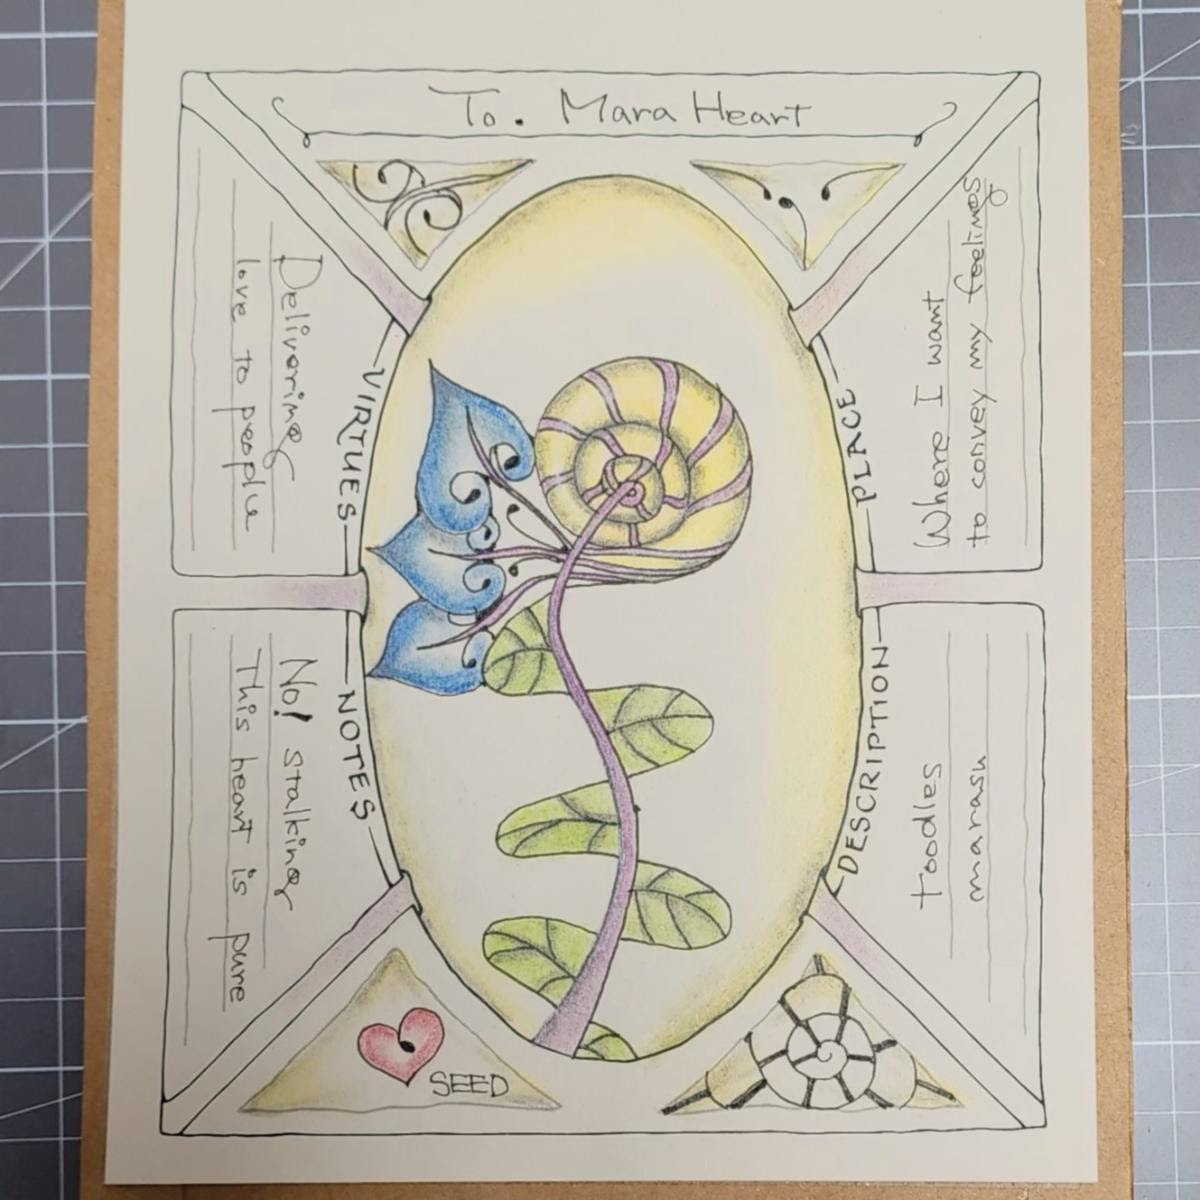 To. Mara Heart
VIRTUES
Delivering
love to people
PLACE
Where I want
to convey my feelings
NOTES
No! stalking
This heart is pure
DESCRIPTION
toodles
marasu
SEED